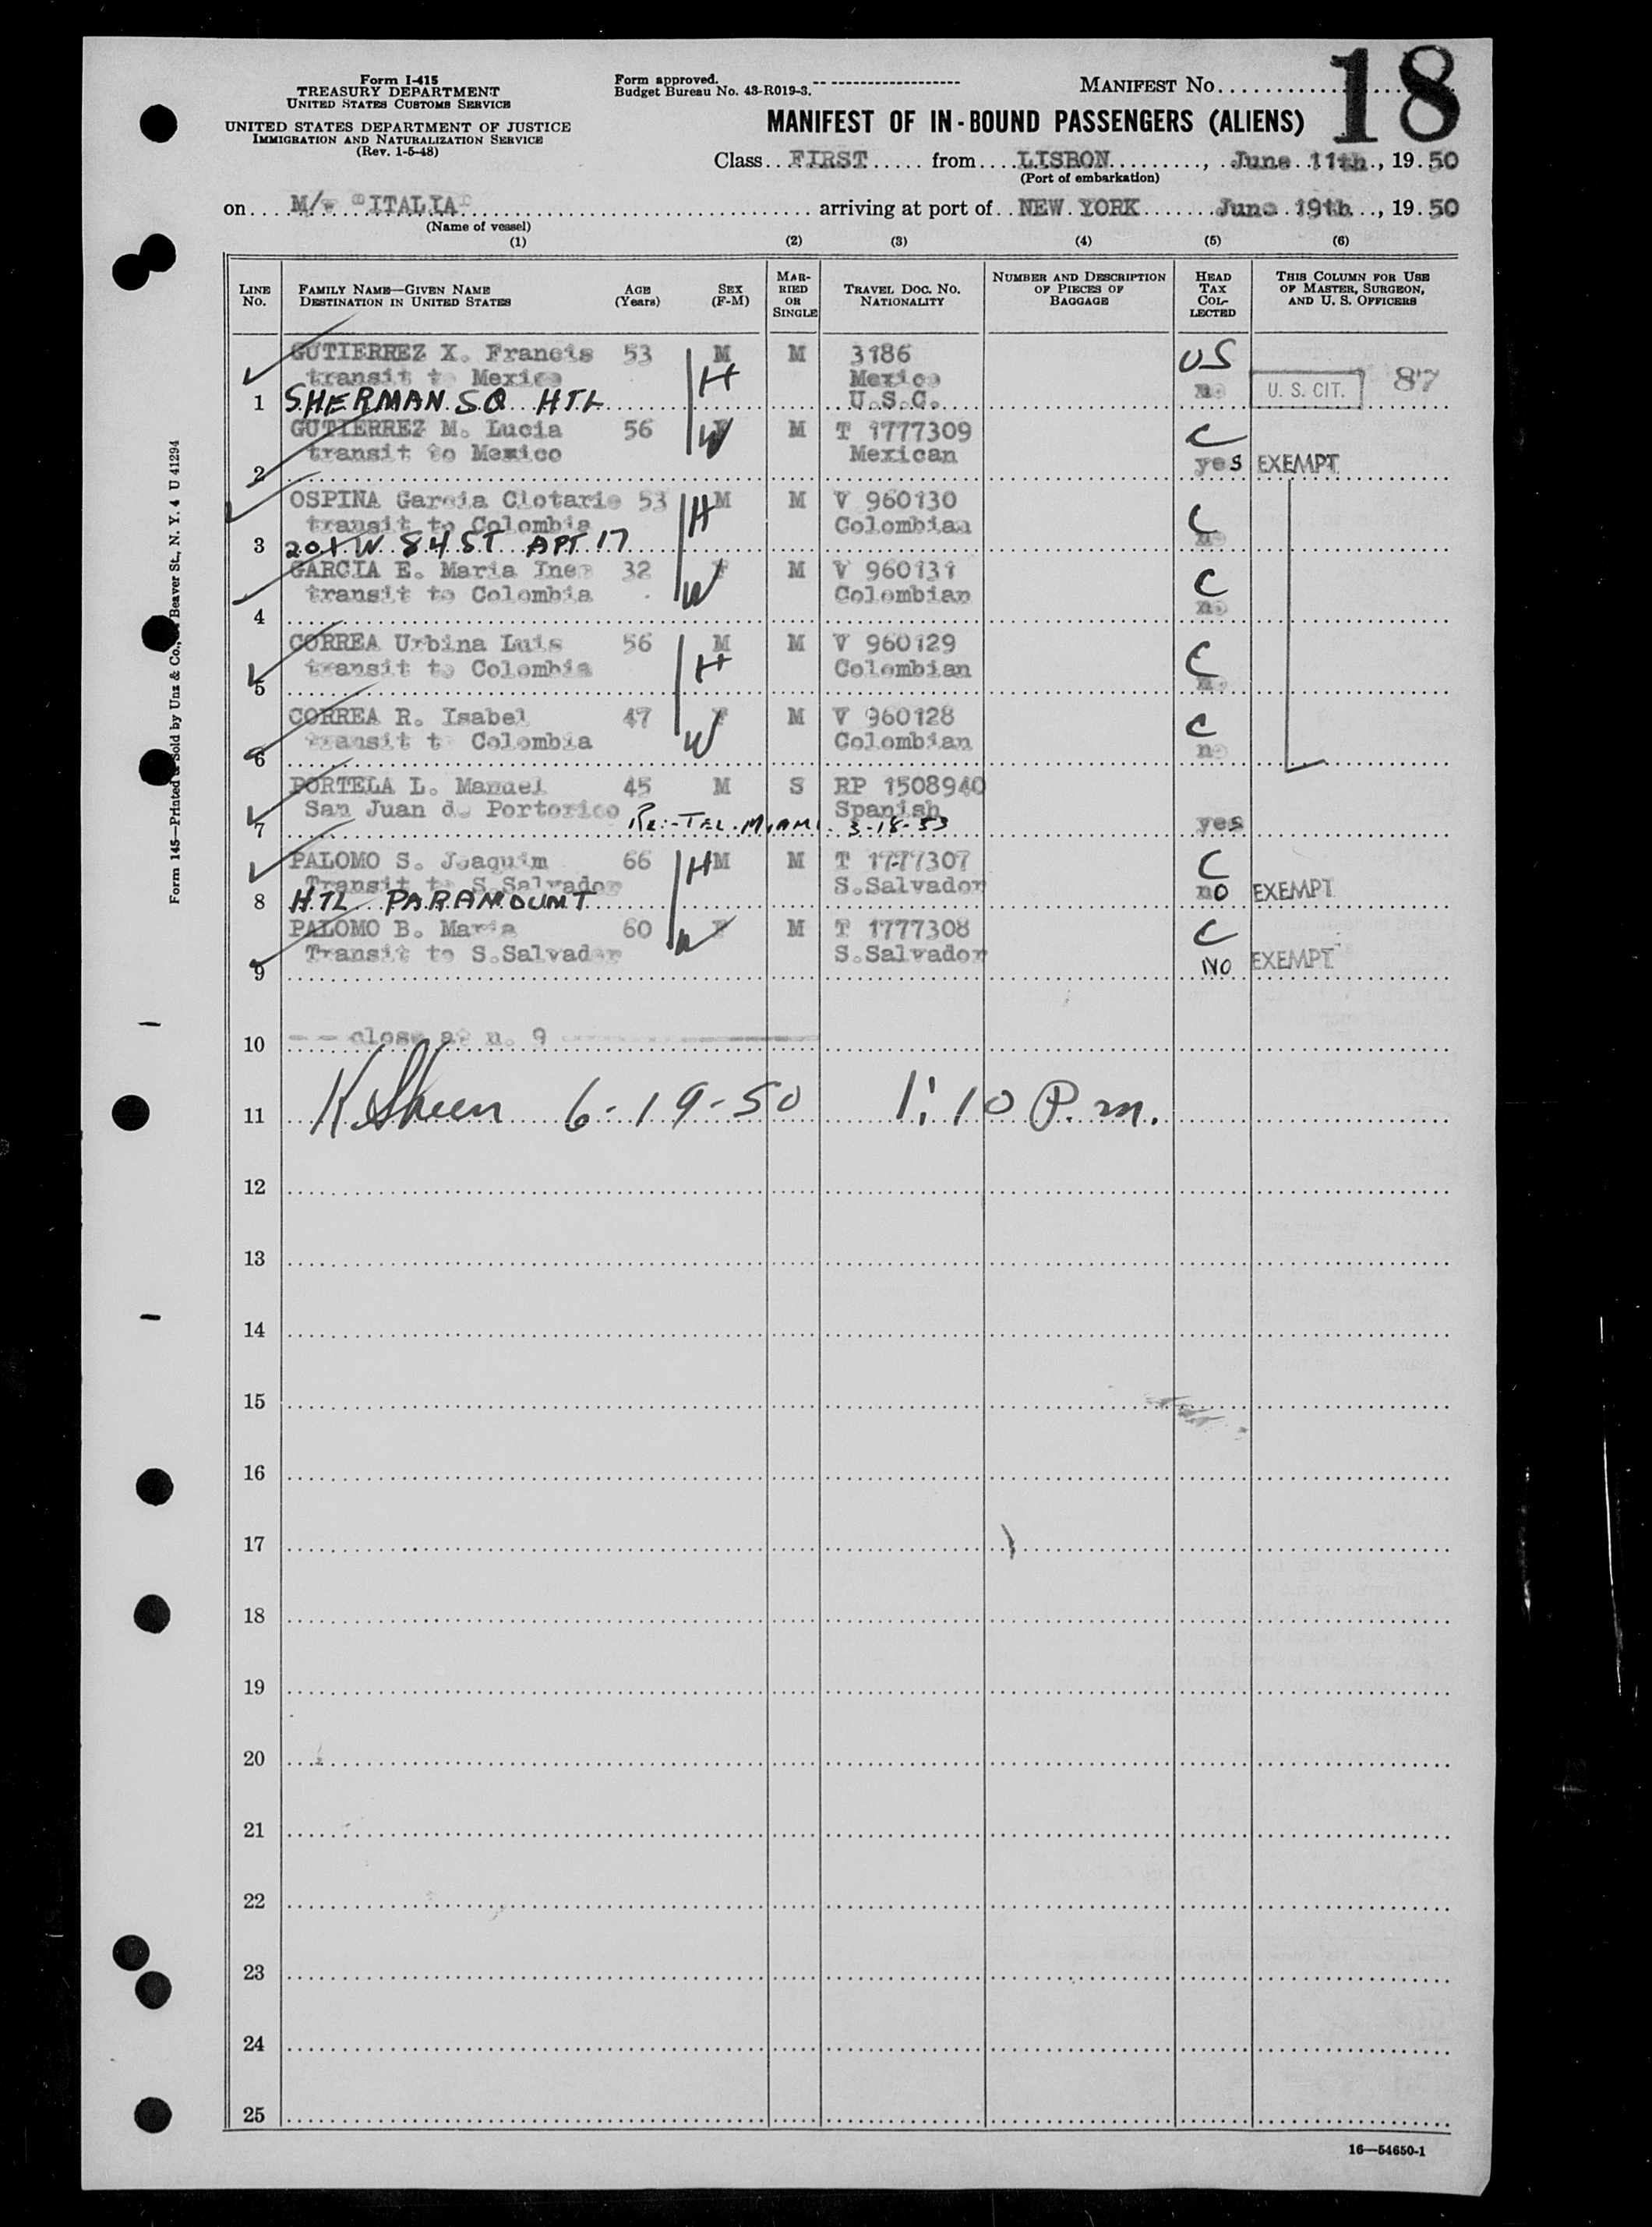 Form I-415
TREASURY DEPARTMENT
UNITED STATES CUSTOMS SERVICE
UNITED STATES DEPARTMENT OF JUSTICE
IMMIGRATION AND NATURALIZATION SERVICE
(Rev. 1-5-48)
Form approved.
Budget Bureau No. 43-R019-3.
MANIFEST No. 18
MANIFEST OF IN-BOUND PASSENGERS (ALIENS)
Class FIRST from LISBON, June 11th, 1950
(Port of embarkation)
on M/ "ITALIA" arriving at port of NEW YORK June 19th, 1950
(Name of vessel)
(1) (2) (3) (4) (5) (6)
LINE No. FAMILY NAME—GIVEN NAME DESTINATION IN UNITED STATES AGE (Years) SEX (F-M) MARRIED OR SINGLE TRAVEL DOC. NO. NATIONALITY NUMBER AND DESCRIPTION OF PIECES OF BAGGAGE HEAD TAX COLLECTED THIS COLUMN FOR USE OF MASTER, SURGEON, AND U. S. OFFICERS
GUTIERREZ X. Francis 53 M M 3186 US
transit to Mexico H Mexico
1 SHERMAN SQ HTL U.S.C. no U. S. CIT. 87
GUTIERREZ M. Lucia 56 F W M T 1777309 C
transit to Mexico Mexican
2 yes EXEMPT
OSPINA Garcia Clotario 53 H M M V 960130
transit to Colombia Colombian C
3 201 W 84 ST APT 17 no
GARCIA E. Maria Ines 32 F M V 960131
transit to Colombia W Colombian C
4 no
CORREA Urbina Luis 56 M M V 960129
transit to Colombia H Colombian C
5 no
CORREA R. Isabel 47 F M V 960128 C
transit to Colombia W Colombian
6 no
PORTELA L. Manuel 45 M S RP 1508940
San Juan de Portorico Spanish
7 Re:-TEL. MIAMI. 3-18-53 yes
PALOMO S. Joaquim 66 H M M T 1777307 C
Transit to S.Salvador S.Salvador
8 HTL PARAMOUNT no EXEMPT
PALOMO B. Maria 60 W F M T 1777308 C
Transit to S.Salvador S.Salvador
9 NO EXEMPT
10 -- close at n. 9
11 6-19-50 1:10 P.m.
12
13
14
15
16
17
18
19
20
21
22
23
24
25
16—54650-1
Form 145—Printed & Sold by Unz & Co., Beaver St., N. Y. 4 U 41294